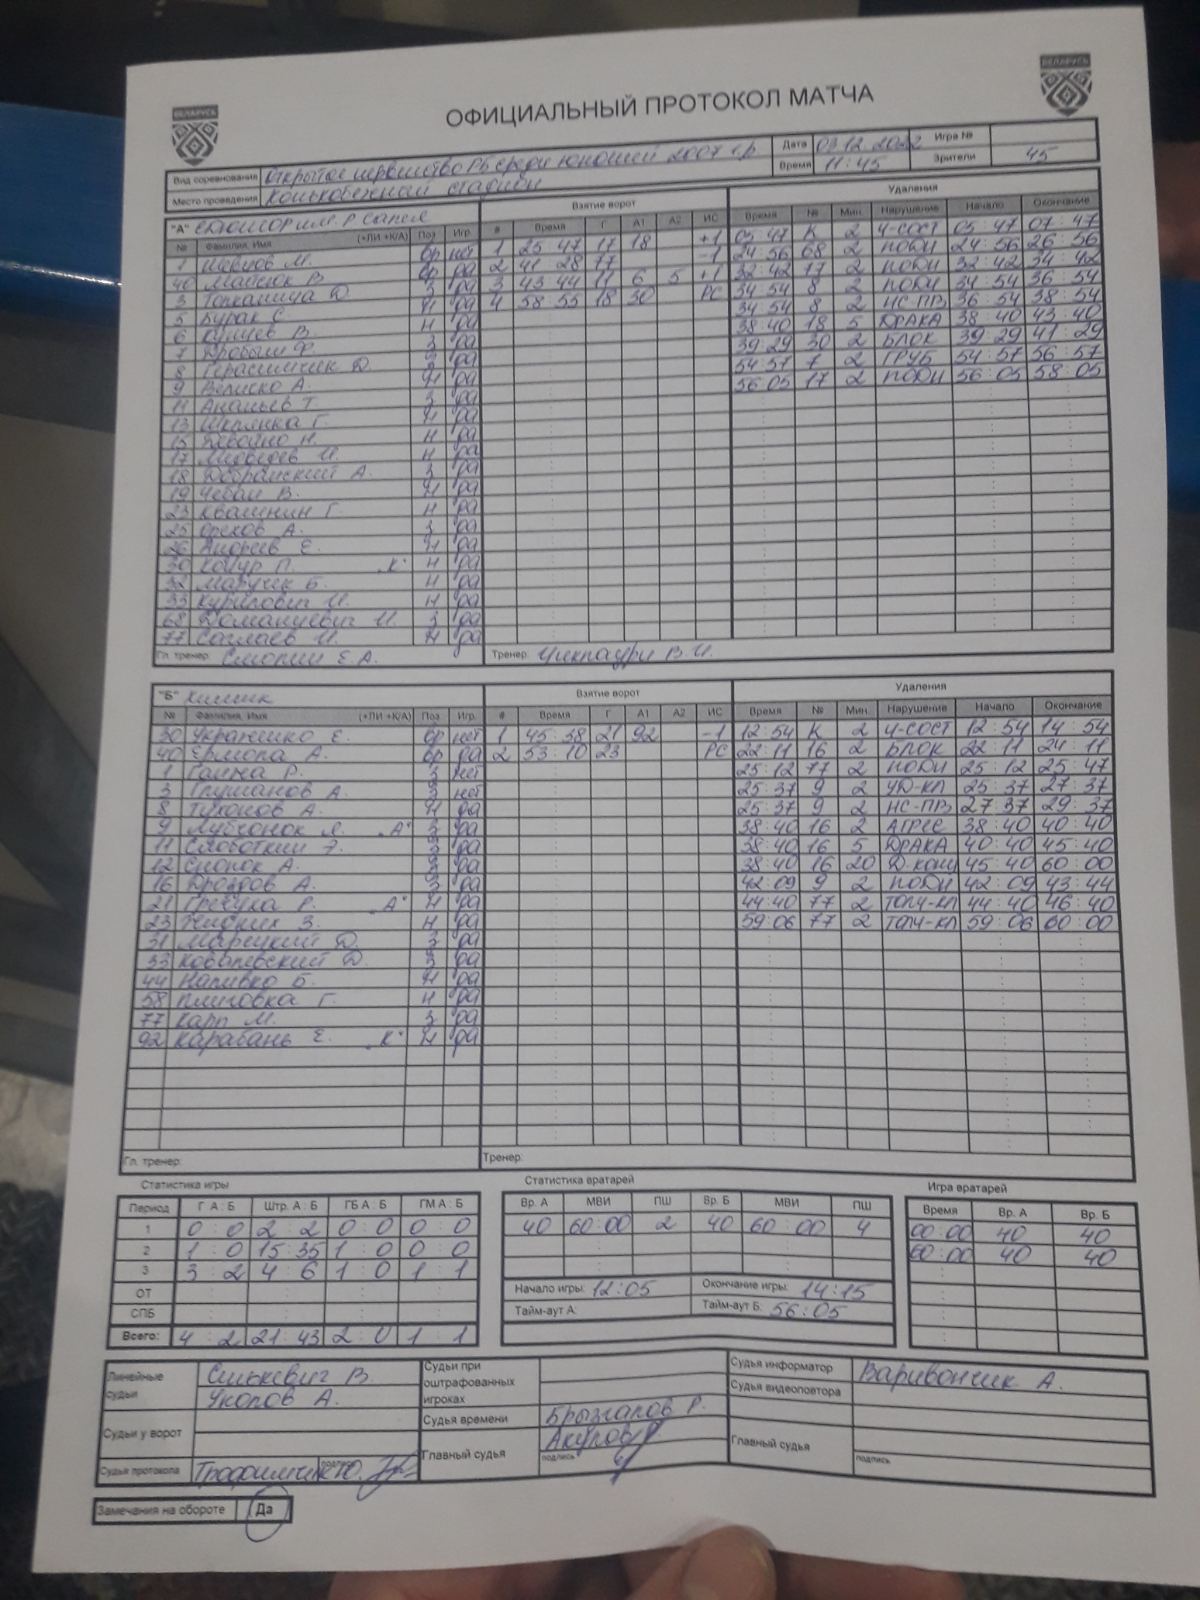 БЕЛАРУСЬ
БЕЛАРУСЬ
ОФИЦИАЛЬНЫЙ ПРОТОКОЛ МАТЧА
Вид соревнования Открытое первенство РБ среди юношей 2007 г.р. Дата 03.12.2022 Игра №
Место проведения Конькобежный стадион Время 11:45 Зрители 45
"А" Взятие ворот Удаления
№ Фамилия, Имя (+ПИ +К/А) Поз Игр. # Время Г А1 А2 ИС Время № Мин. Нарушение Начало Окончание
1 Шевцов М. вр нет 1 25 47 17 18 +1 05 47 К 2 Ч-СОСТ 05 47 07 47
40 В. вр да 2 41 28 77 -1 24 56 68 2 ПОДН 24 56 26 56
3 Д. З да 3 43 44 11 6 5 +1 32 42 17 2 ПОДН 32 42 34 42
5 Бурак С Н да 4 58 55 18 30 РС 34 54 8 2 ПОДН 34 54 36 54
6 В. Н да 34 54 8 2 НС-ПВ 36 54 38 54
7 Дробыш Ф. З да 38 40 18 5 ДРАКА 38 40 43 40
8 Герасимчик Д. З да 39 29 30 2 БЛОК 39 29 41 29
9 Велиско А. Н да 54 57 7 2 ГРУБ 54 57 56 57
11 Ананьев Т. З да 56 05 17 2 ПОДН 56 05 58 05
13 Шклянка Г. Н да
15 Н. Н да
17 И. Н да
18 Добранский А. З да
19 Чебан В. Н да
23 Квашнин Г. Н да
25 Орехов А. З да
26 Андреев Е. Н да
30 Коцур П. "К" Н да
32 Маручек Б. Н да
33 Курилович И. Н да
68 Доманцевич И. З да
77 Саглаев И. Н да
Гл. тренер: Смолин Е.А. Тренер: В.И.
"Б" Химик Взятие ворот Удаления
№ Фамилия, Имя (+ПИ +К/А) Поз Игр. # Время Г А1 А2 ИС Время № Мин. Нарушение Начало Окончание
30 Е. вр нет 1 45 38 21 92 -1 12 54 К 2 Ч-СОСТ 12 54 14 54
40 Ермола А. вр да 2 53 10 23 РС 22 11 16 2 БЛОК 22 11 24 11
1 Р. З нет 25 12 77 2 ПОДН 25 12 25 47
3 Глушанов А. З нет 25 37 9 2 УД-КЛ 25 37 27 37
8 Тихонов А. Н да 25 37 9 2 НС-ПВ 27 37 29 37
9 "А" З да 38 40 16 2 АГРЕС 38 40 40 40
11 Э. З да 38 40 16 5 ДРАКА 40 40 45 40
12 Снопок А. З да 38 40 16 20 45 40 60 00
16 Дроздов А. З да 42 09 9 2 ПОДН 42 09 43 44
21 Р. "А" Н да 44 40 77 2 ТОЛЧ-КЛ 44 40 46 40
23 З. Н да 59 06 77 2 ТОЛЧ-КЛ 59 06 60 00
31 Марецкий Д. З да
33 Ковалевский Д. З да
44 Наливко Б. Н да
58 Плиговка Г. Н да
77 Карп М. З да
92 Карабань Е. "К" Н да
Гл. тренер: Тренер:
Статистика игры Статистика вратарей Игра вратарей
Период Г А : Б Штр. А : Б ГБ А : Б ГМ А : Б Вр. А МВИ ПШ Вр. Б МВИ ПШ Время Вр. А Вр. Б
1 0 : 0 2 : 2 0 : 0 0 : 0 40 60:00 2 40 60:00 4 00:00 40 40
2 1 : 0 15 : 35 1 : 0 0 : 0 60:00 40 40
3 3 : 2 4 : 6 1 : 0 1 : 1
ОТ Начало игры: 12:05 Окончание игры: 14:15
СПБ Тайм-аут А: Тайм-аут Б: 56:05
Всего: 4 : 2 21 : 43 2 : 0 1 : 1
Линейные судьи Синкевич В. Судьи при оштрафованных игроках Судья информатор Варивончик А.
Уколов А. Судья видеоповтора
Судьи у ворот Судья времени Брызгалов Р.
Главный судья Акулов Главный судья
Судья протокола подпись подпись подпись
Замечания на обороте Да